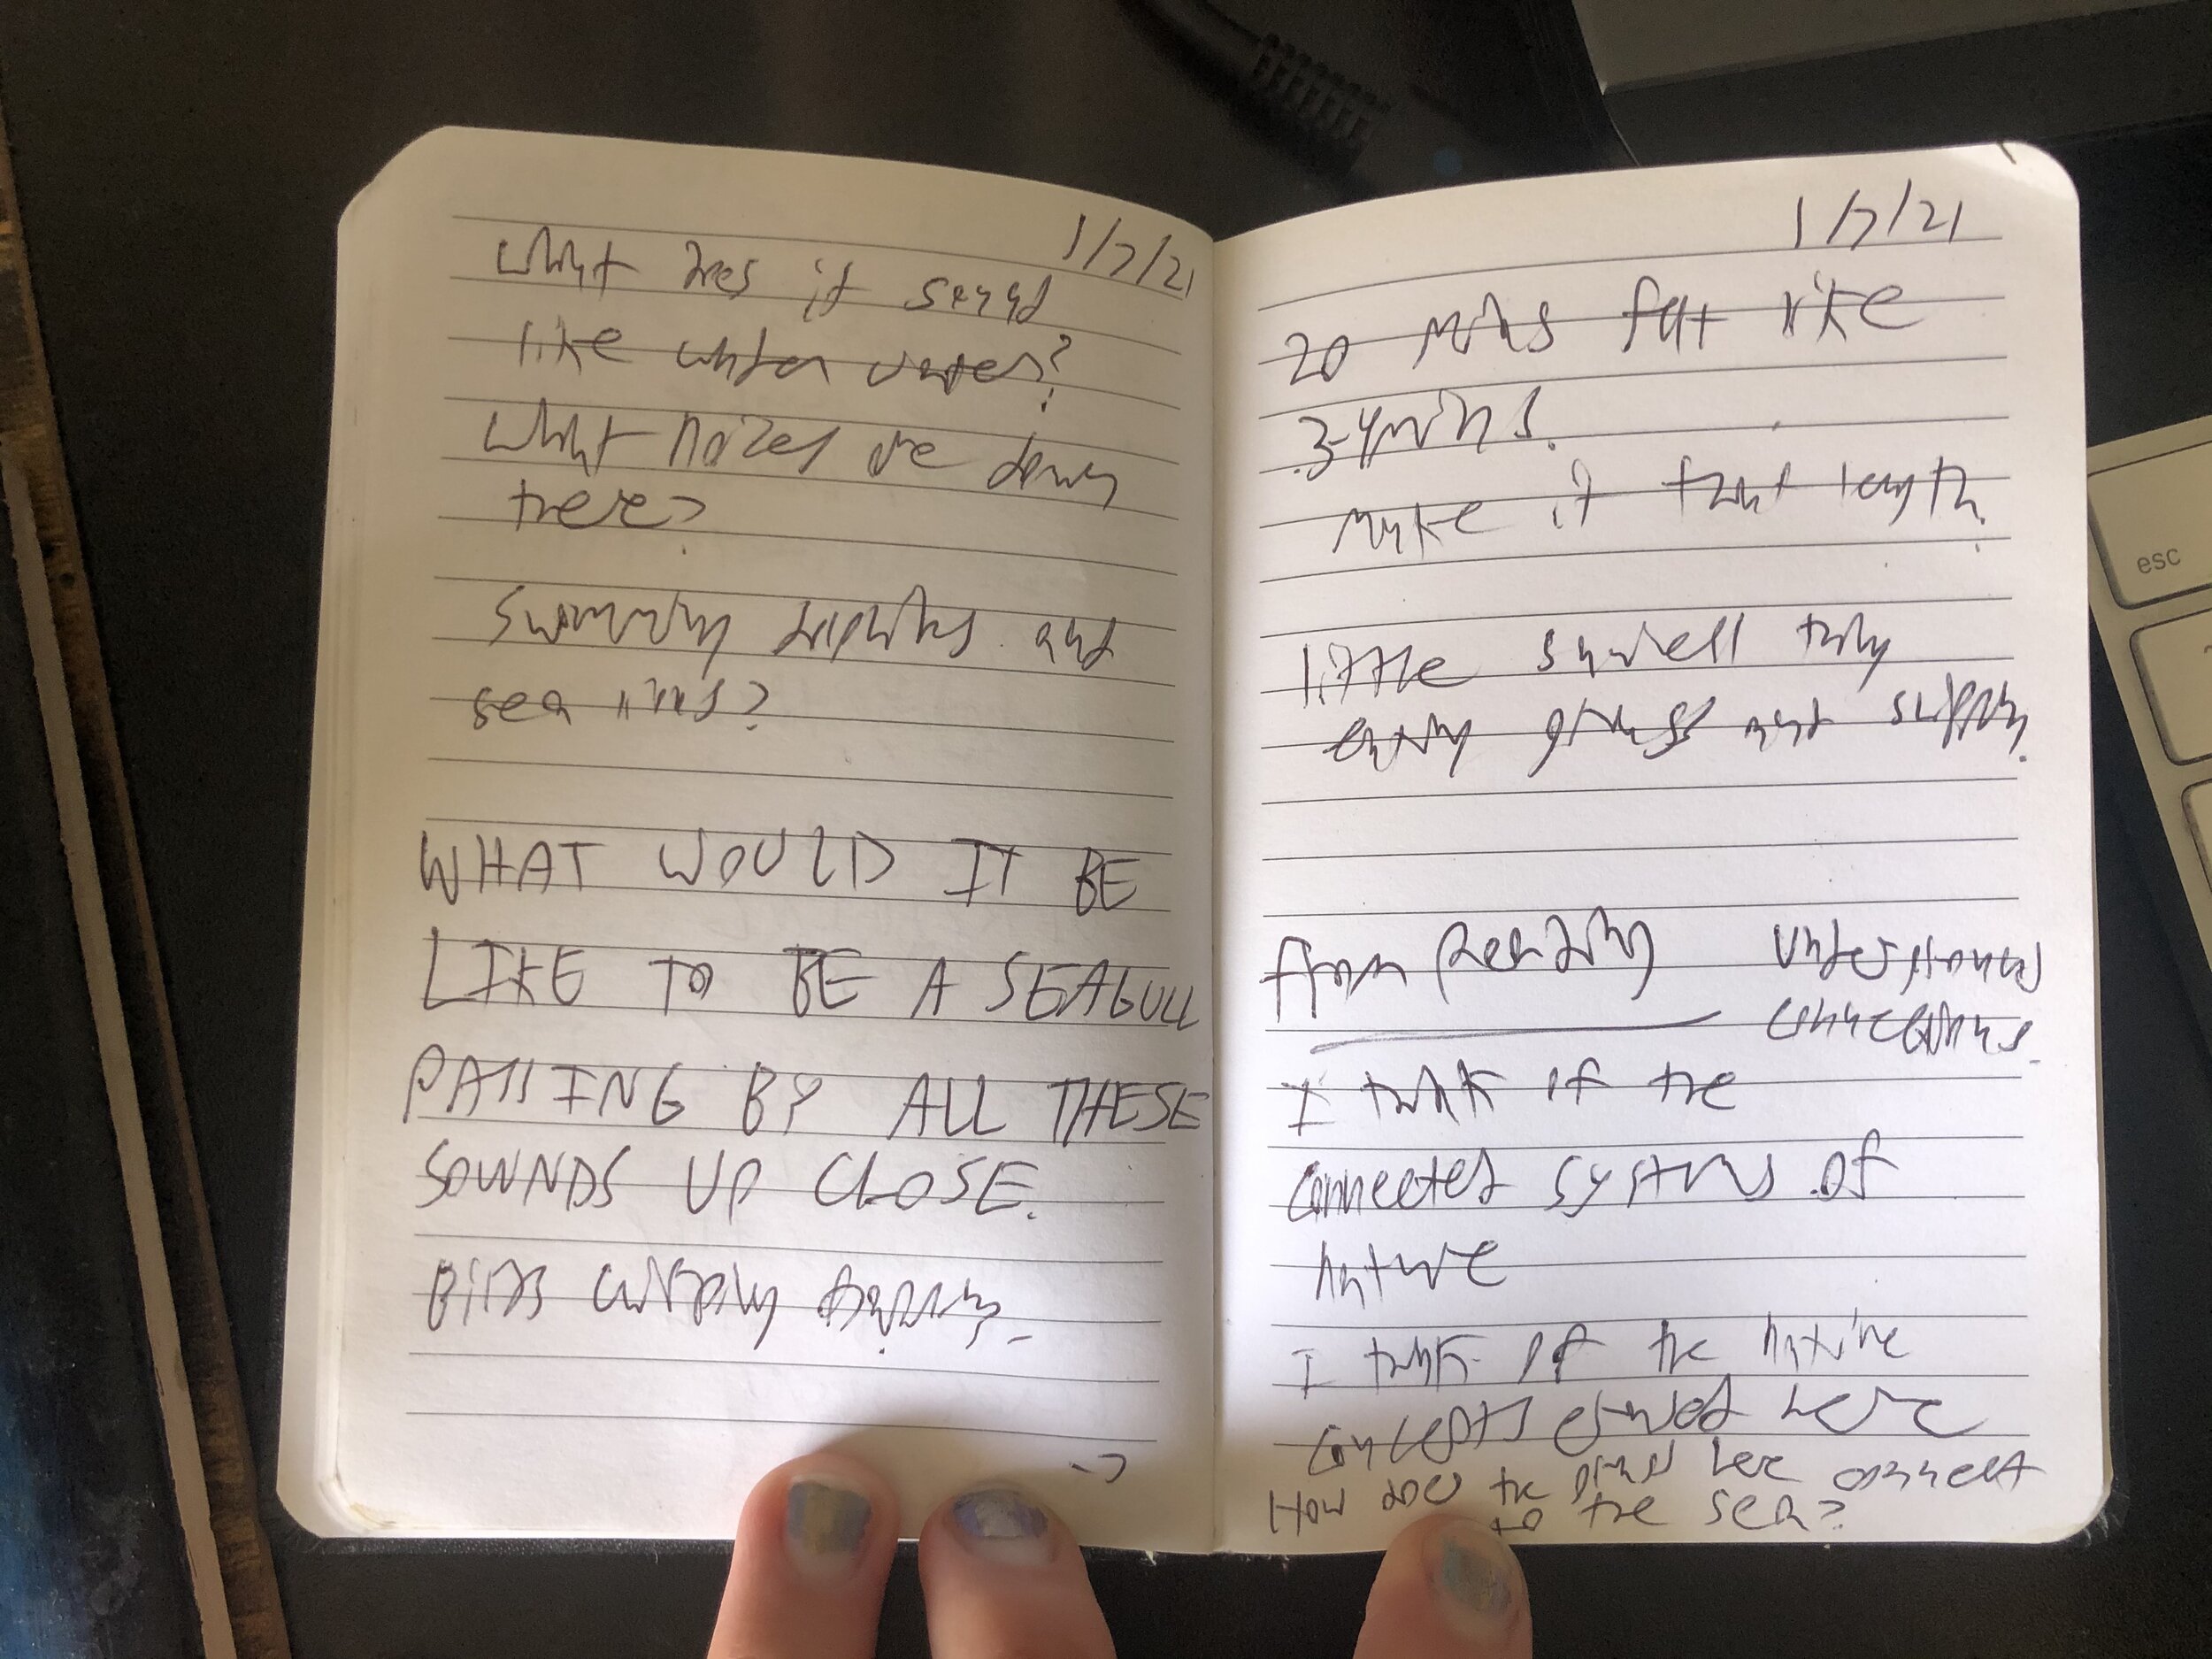 1/7/21
What does it sound
like under water?
What noizes are down
there?
Swimming dolphins and
sea lions?
WHAT WOULD IT BE
LIKE TO BE A SEAGULL
PASSING BY ALL THESE
SOUNDS UP CLOSE.
Birds
1/7/21
20 mins felt like
3-4 mins.
Make it that length.
little squirell
eating grass and
from Reading underground
connections.
I think of the
connected systems of
nature
I think of the native
concepts here
How does the here connect
to the sea?
esc